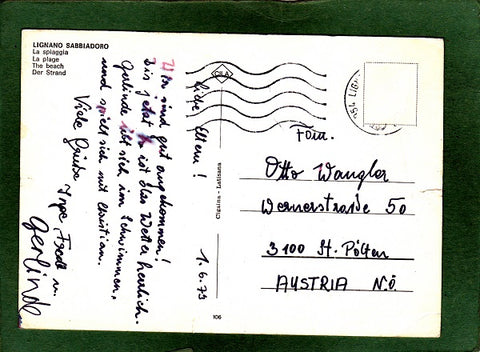 LIGNANO SABBIADORO
La spiaggia
La plage
The beach
Der Strand
CILA
Cigaina - Latisana
106
1.6.79
Liebe Eltern!
Wir sind gut angekommen!
Bis jetzt ist das Wetter herrlich.
Gerlinde übt sich im Schwimmen,
und spielt sich mit Christian.
Viele Grüße Inge, Ferdl u.
Gerlinde
Fam.
Otto Wangler
Wernerstraße 50
3100 St. Pölten
AUSTRIA N.Ö.